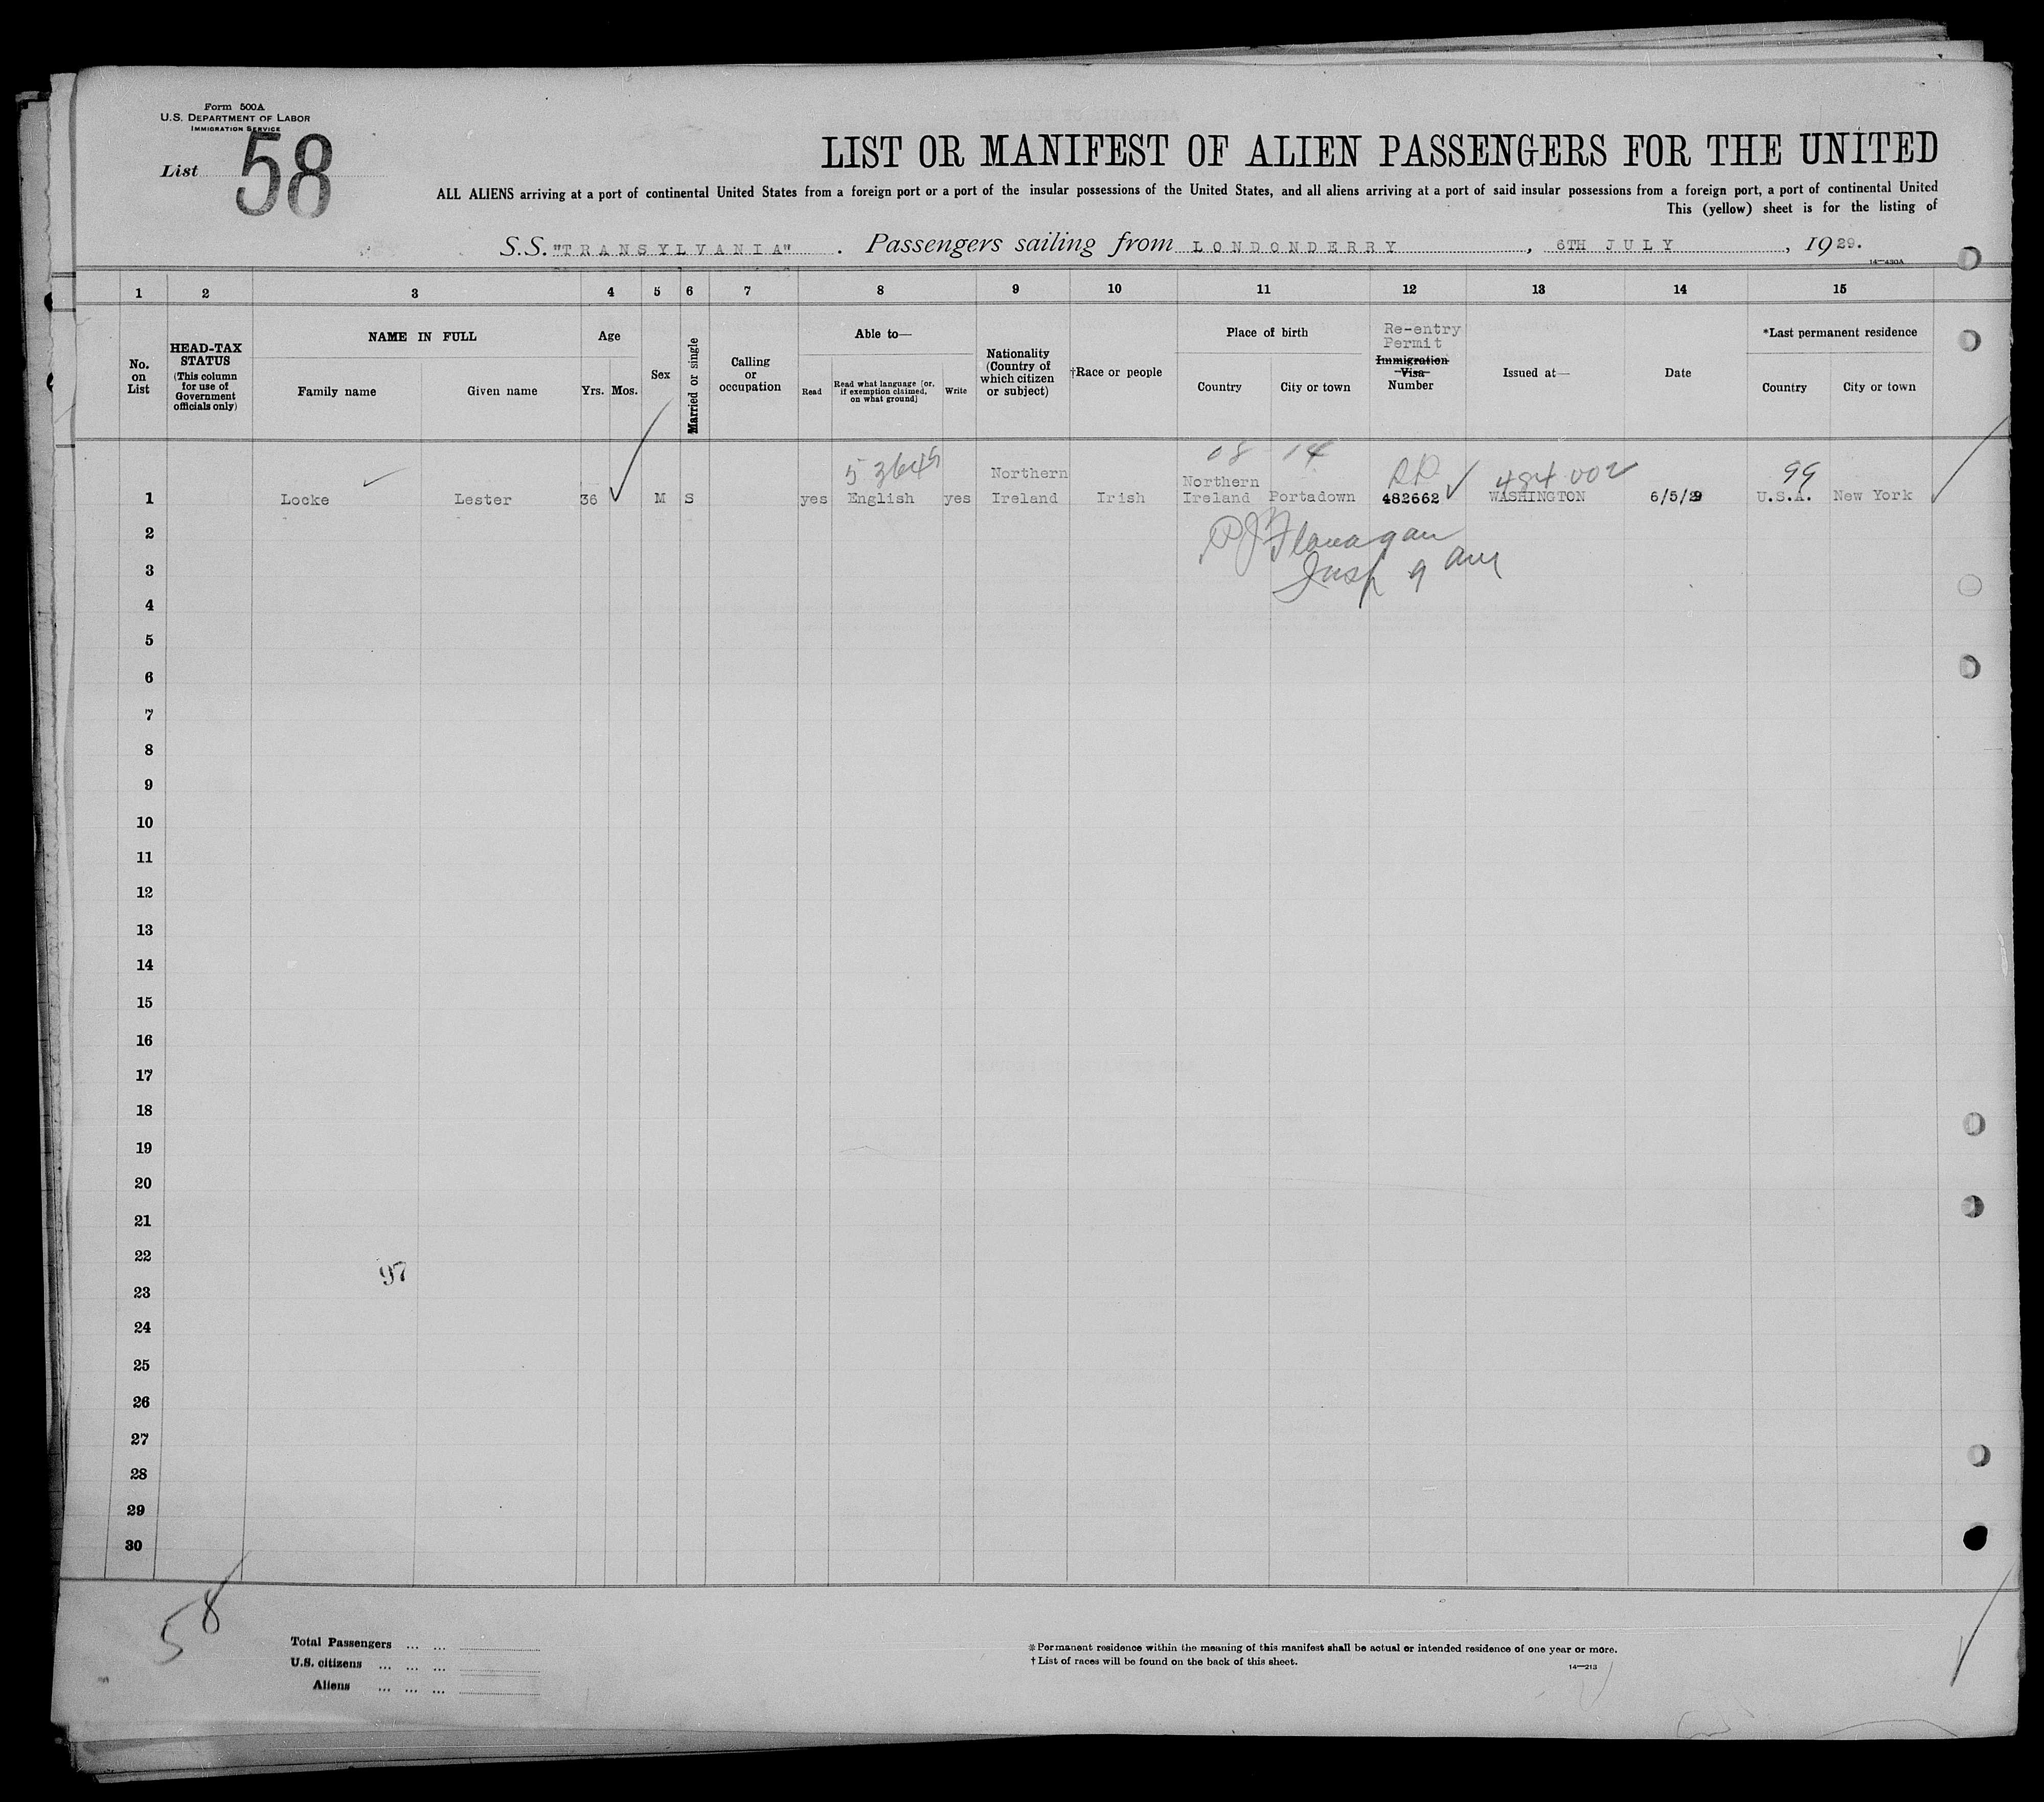 Form 500A
U.S. DEPARTMENT OF LABOR
IMMIGRATION SERVICE
List 58
LIST OR MANIFEST OF ALIEN PASSENGERS FOR THE UNITED
ALL ALIENS arriving at a port of continental United States from a foreign port or a port of the insular possessions of the United States, and all aliens arriving at a port of said insular possessions from a foreign port, a port of continental United
This (yellow) sheet is for the listing of
S.S. "TRANSYLVANIA" . Passengers sailing from LONDONDERRY , 6TH JULY , 1929.
14—430A
1 2 3 4 5 6 7 8 9 10 11 12 13 14 15
No. on List
HEAD-TAX STATUS (This column for use of Government officials only)
NAME IN FULL
Family name Given name
Age
Yrs. Mos.
Sex
Married or single
Calling or occupation
Able to—
Read Read what language [or, if exemption claimed, on what ground] Write
Nationality (Country of which citizen or subject)
†Race or people
Place of birth
Country City or town
Re-entry Permit
Immigration Visa Number
Issued at—
Date
*Last permanent residence
Country City or town
08 14
5 3645 RP 484 002 99
Northern Northern
1 Locke Lester 36 M S yes English yes Ireland Irish Ireland Portadown 482662 WASHINGTON 6/5/29 U.S.A. New York
2
PJ Flanagan
3
Insp 9 am
4
5
6
7
8
9
10
11
12
13
14
15
16
17
18
19
20
21
22
97
23
24
25
26
27
28
29
30
58
Total Passengers ... ...
U.S. citizens ... ... ...
Aliens ... ... ...
*Permanent residence within the meaning of this manifest shall be actual or intended residence of one year or more.
†List of races will be found on the back of this sheet.
14—213